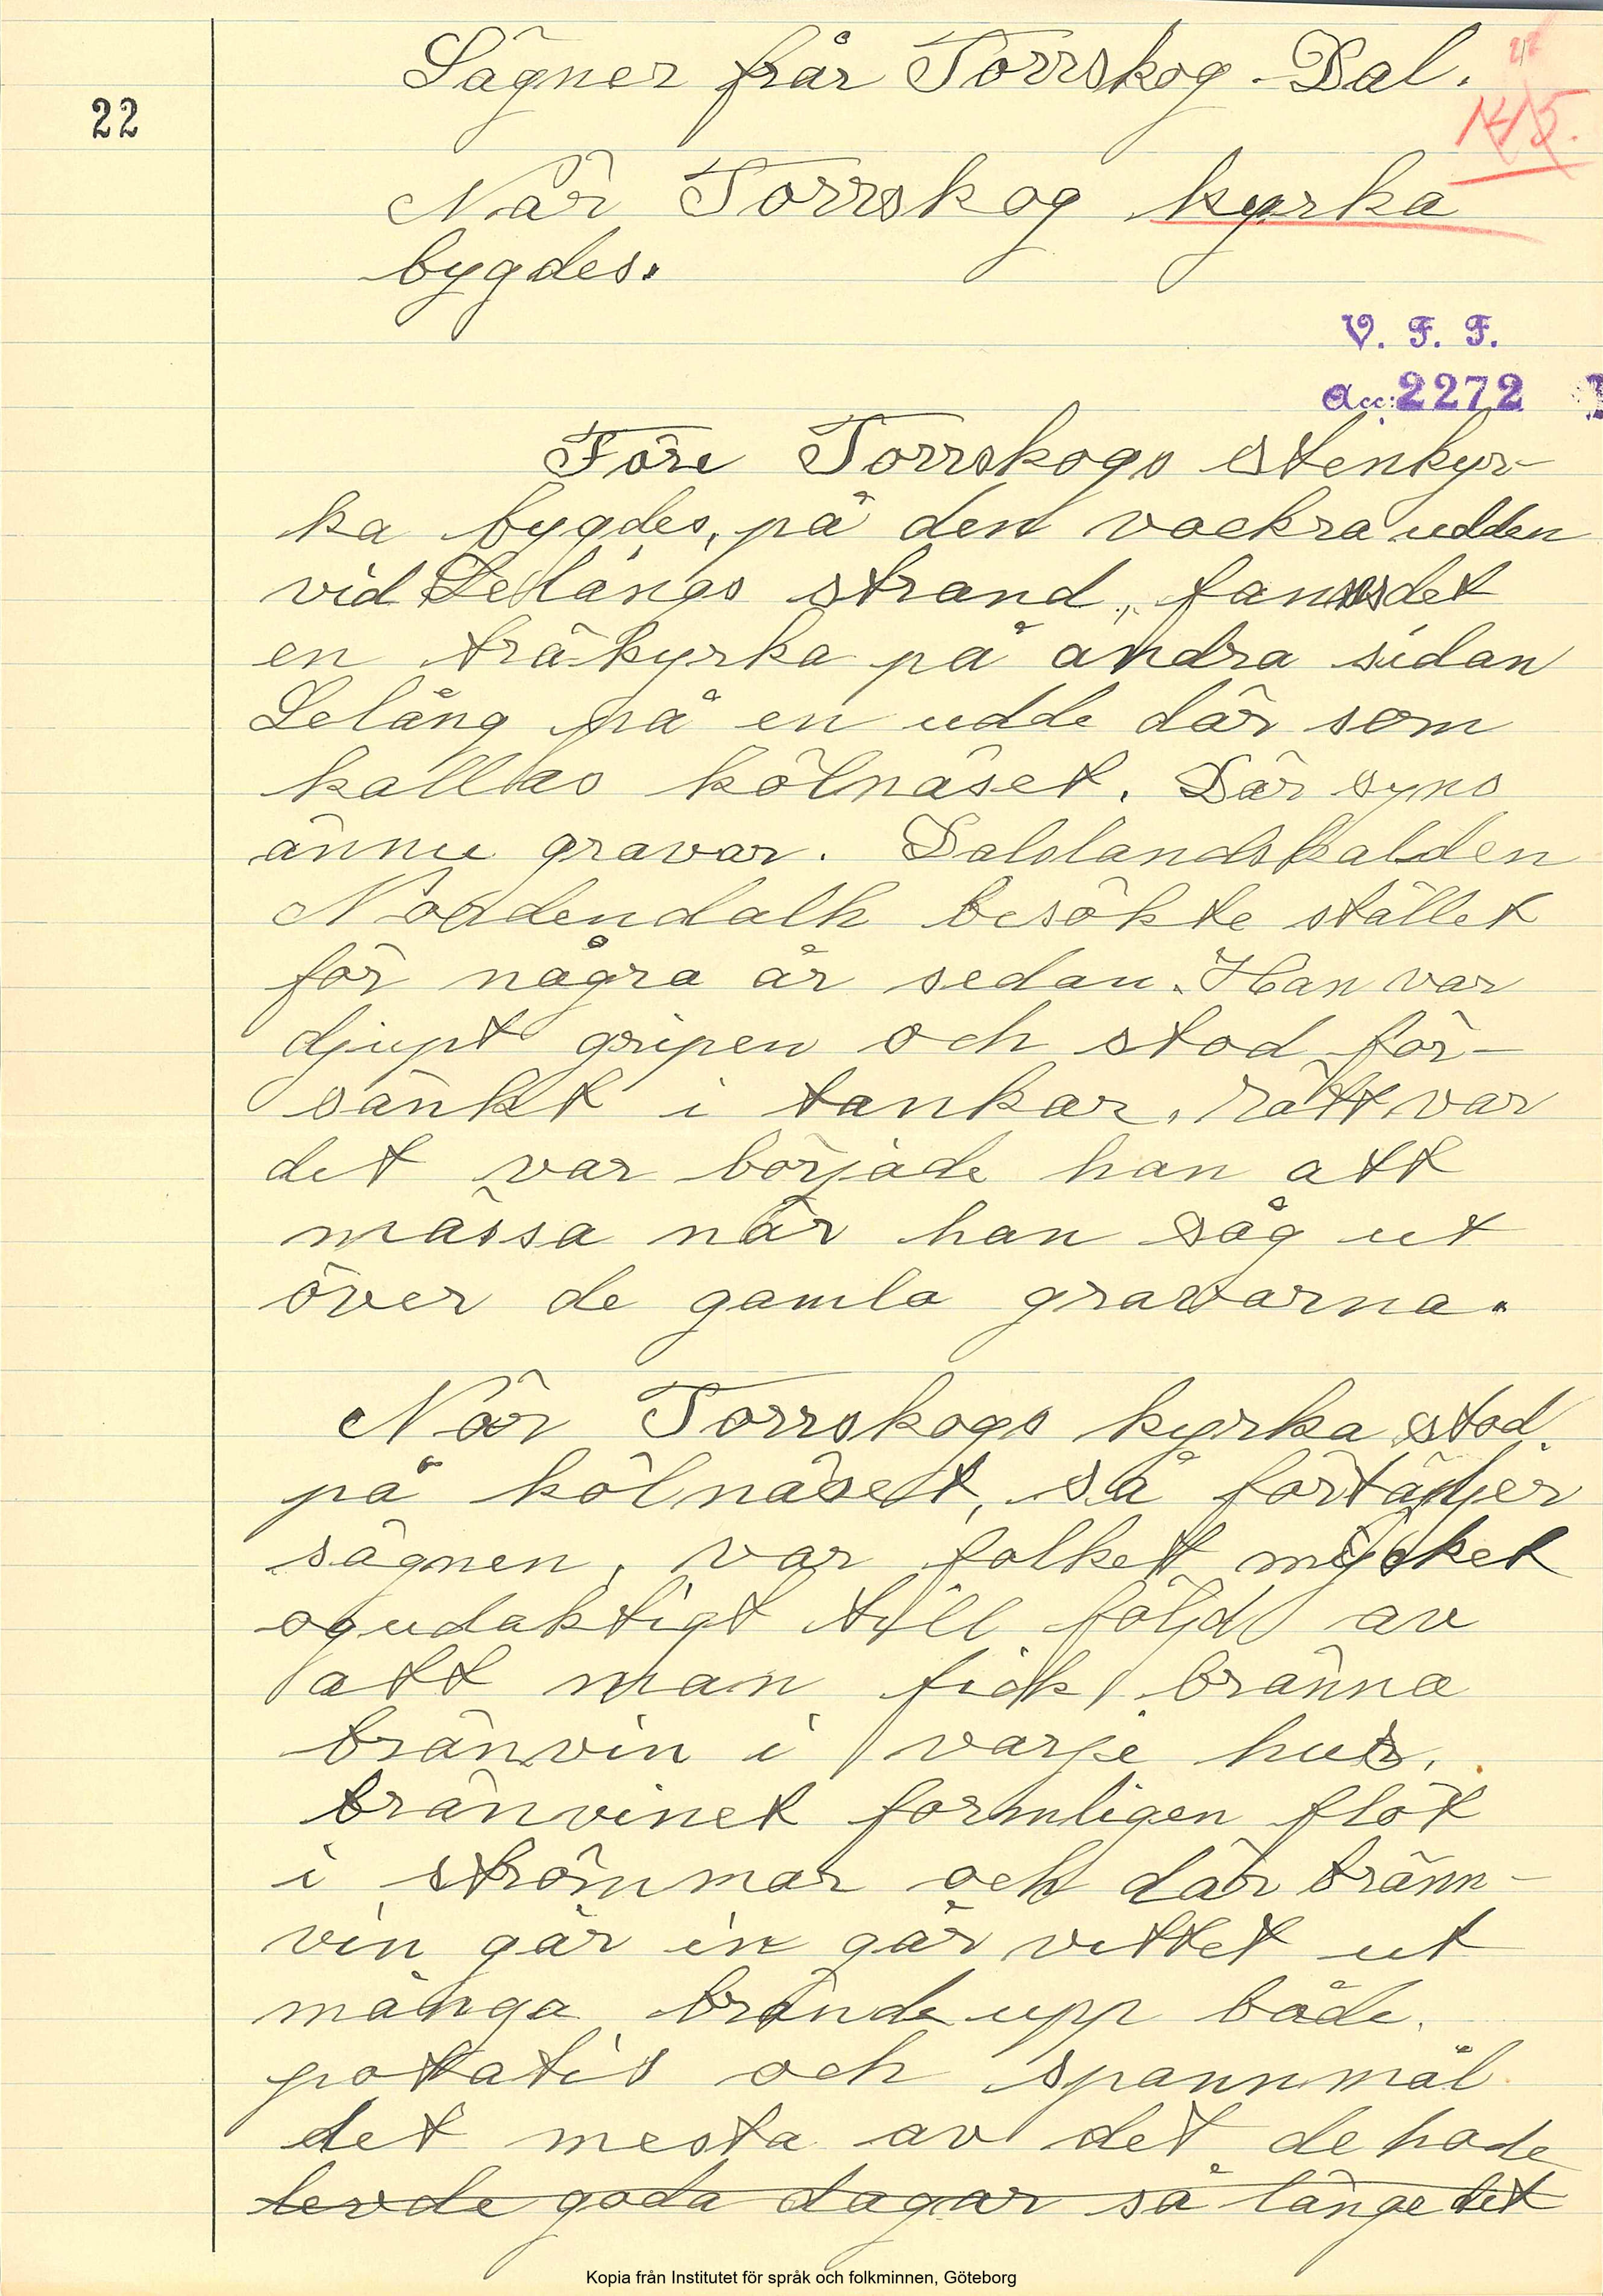 Sägner från Torrskog - Dal.
22
När Torrskog kyrka
bygdes.
V. F. F.
Acc: 2272
Före Torrskogs stenkyr-
ka bygdes, på den vackra udden
vid Lelångs strand, fanns det
en träkyrka på andra sidan
Lelång på en udde där som
kallas kölnäset. Där syns
ännu gravar. Dalslandskalden
Nordendalh besökte stället
för några år sedan. Han var
djupt gripen och stod för-
sänkt i tankar. rätt var
det var började han att
mässa når han såg ut
över de gamla gravarna.
När Torrskogs kyrka stod
på kölnäset, så förtäljer
sägnen, var folket mycket
ogudaktigt till följd av
att man fick bränna
bränvin i varje hus.
bränvinet formligen flöt
i strömmar och där bränn-
vin går in går vettet ut
många brände upp både
potatis och spannmål
det mesta av det de hade
levde goda dagar så länge det
Kopia från Institutet för språk och folkminnen, Göteborg